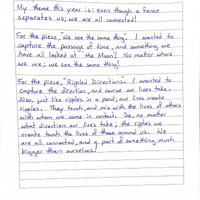 My theme this year is: even though a fence
separates us; we are all connected!
For the piece, "We see the same thing". I wanted to
capture the passage of time, and something we
have all looked at "the Moon". No matter where
we are; we see the same thing!
For the piece, "Rippled Directions". I wanted to
capture the direction, and course our lives take.
Also, just like ripples in a pond; our lives create
ripples. They touch, and mix with the lives of others
with whom we come in contact. So, no matter
what direction our lives take, the ripples we
create touch the lives of those around us. We
are all connected, and a part of something much
bigger than ourselves!